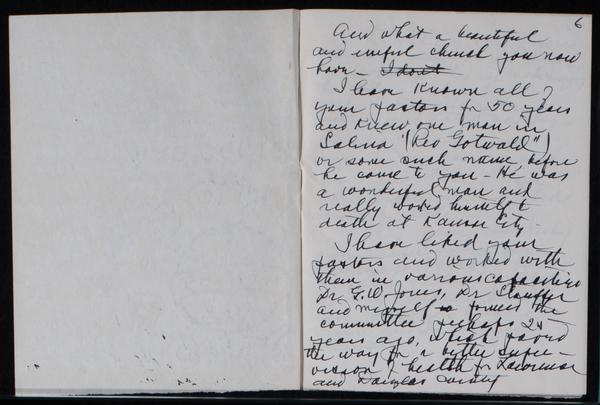 6
And what a beautiful
and useful church you now
have - I don't
I have known all of
your pastors for 50 years
and knew one man in
Salina "(Rev Gotwald")
or some such name before
he came to you - He was
a wonderful man and
really worked himself to
death at Kansas City -
I have liked your
pastors and worked with
them in various capacities
Dr. G.W. Jones, Dr
and myself formed the
committee perhaps 25
years ago, which paved
the way for a better super-
vision of health for Lawrence
and Douglas County